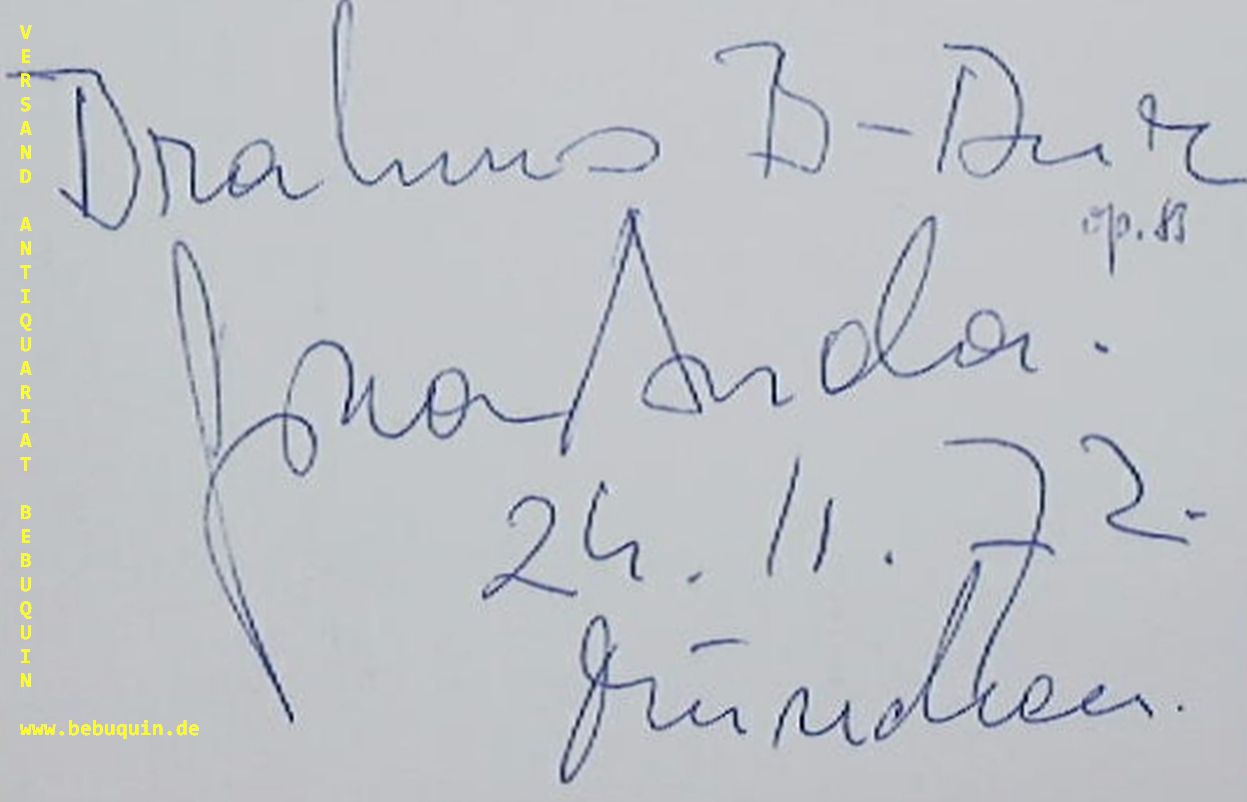 Brahms B-Dur
op. 83
Géza Anda.
24. 11. 72.
München.
VERSAND ANTIQUARIAT BEBUQUIN
www.bebuquin.de